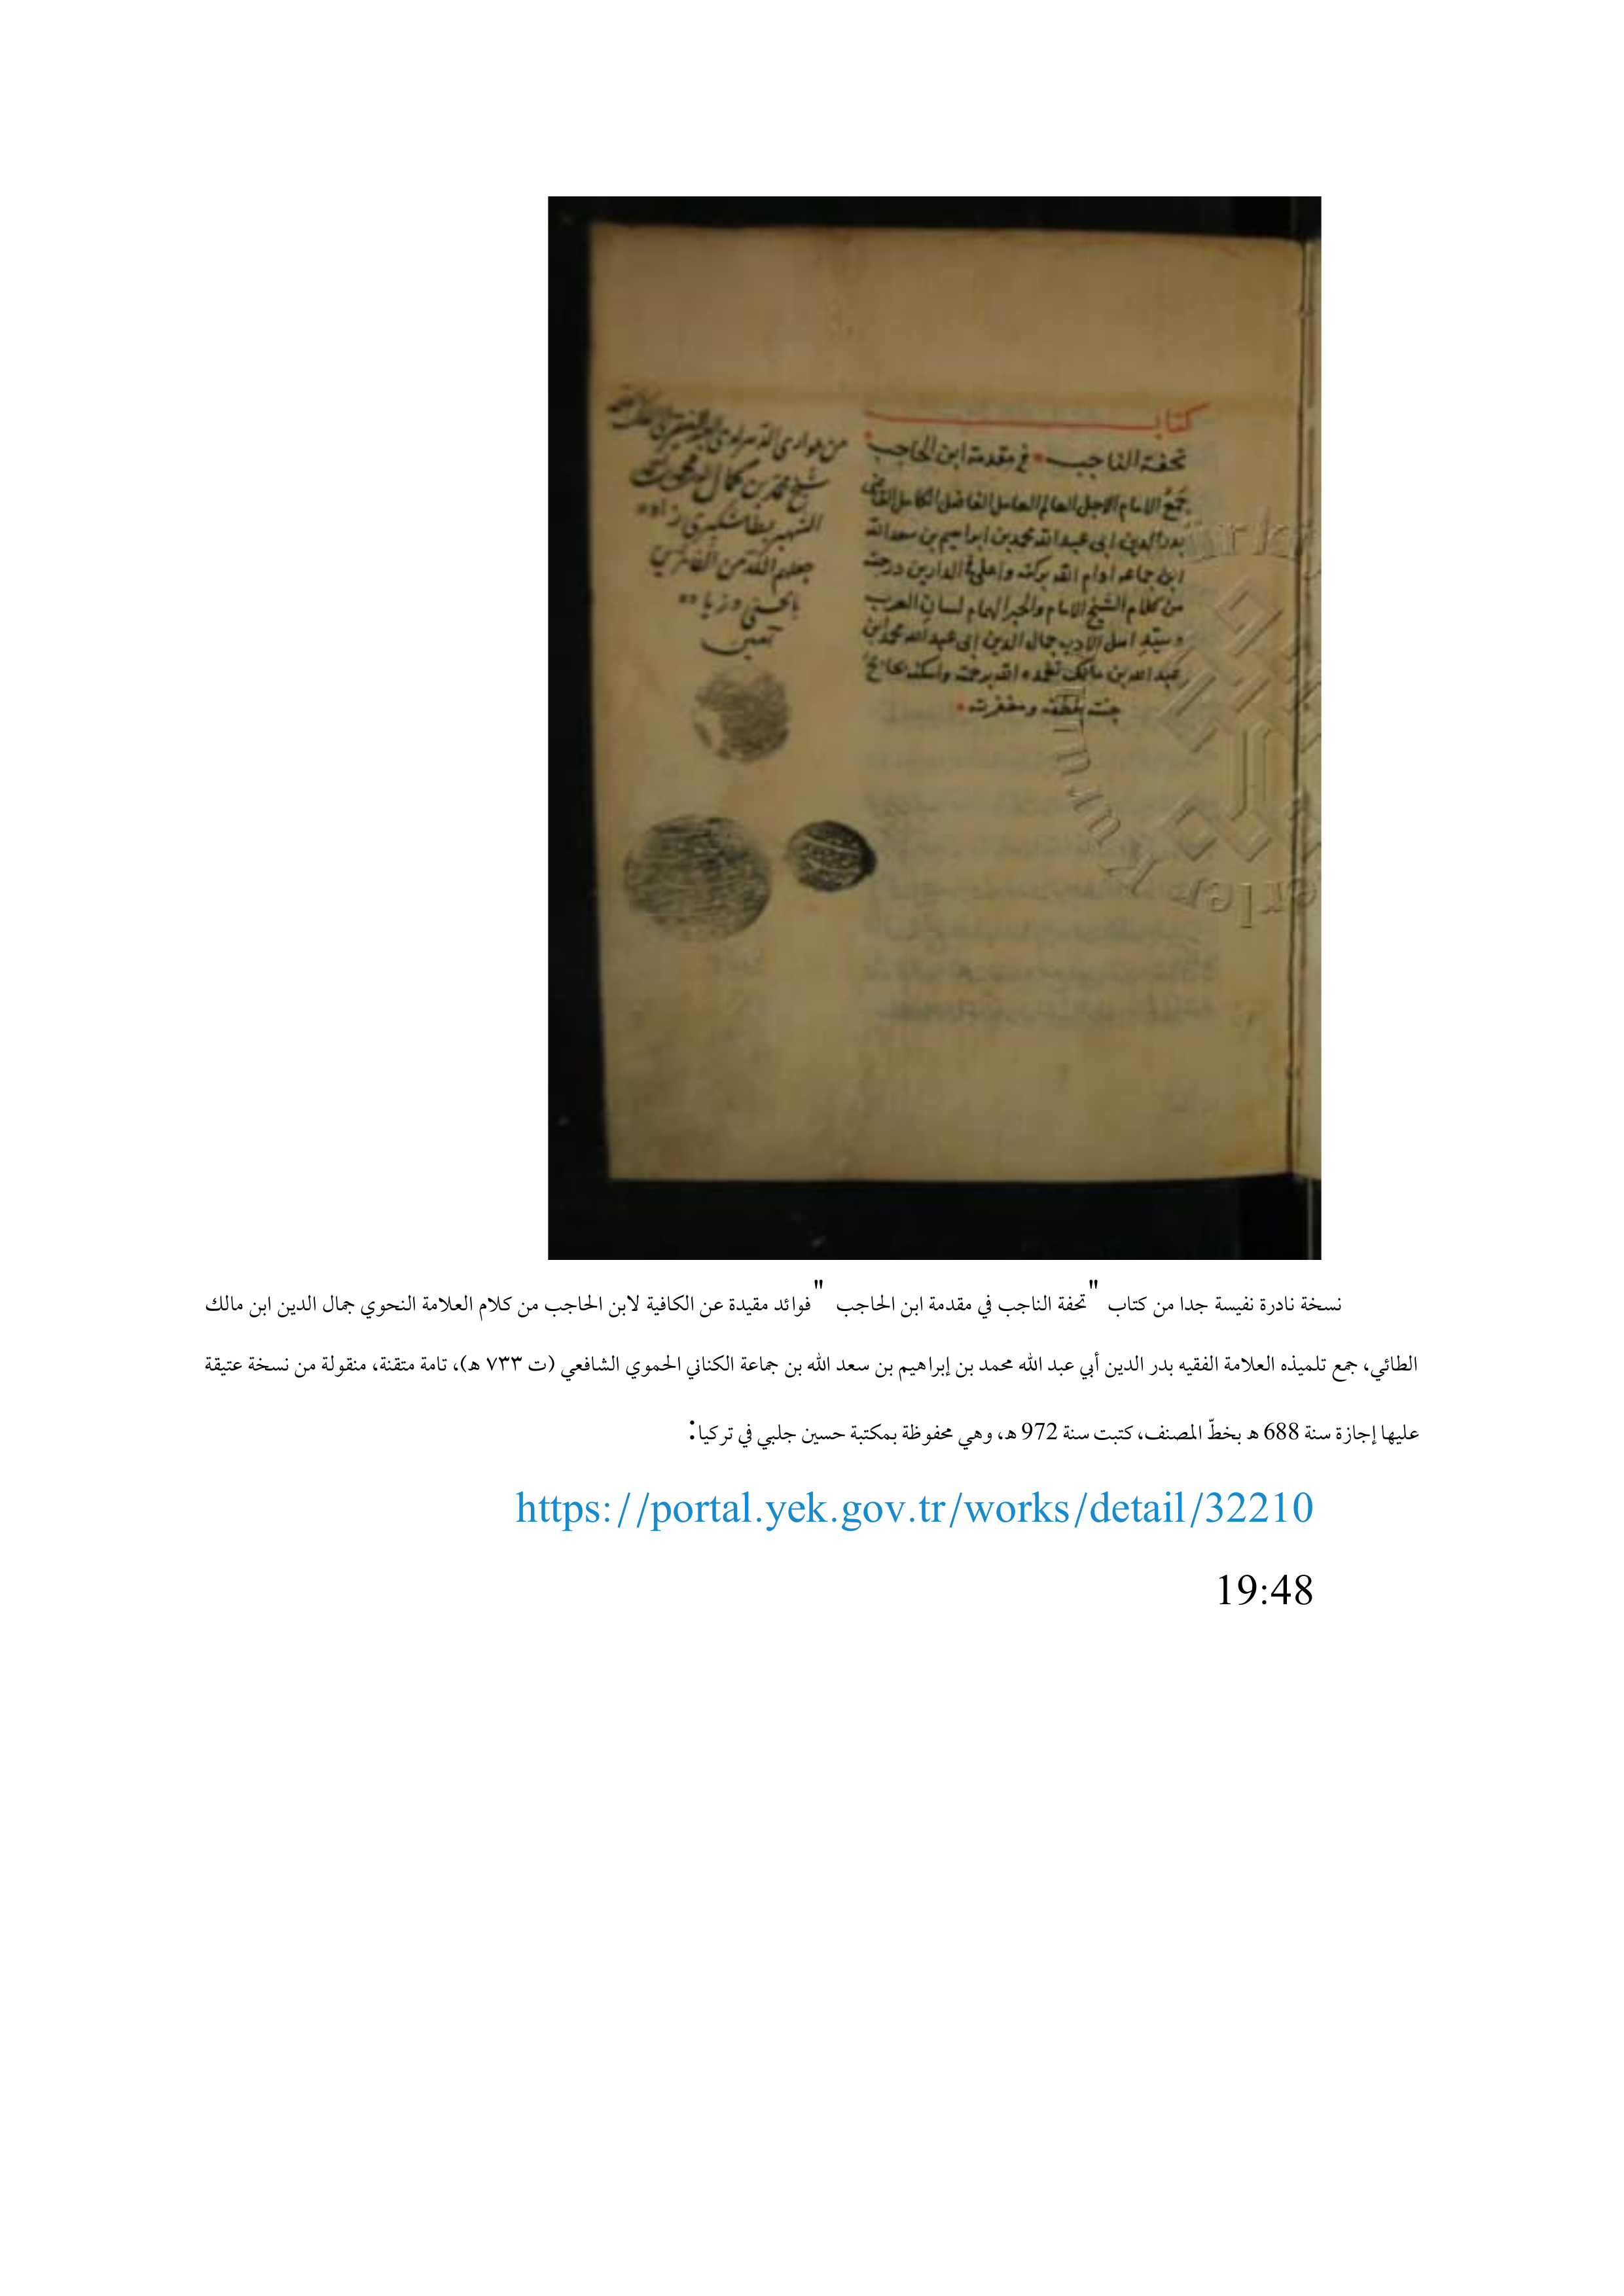 كتاب
تحفة الناجب في مقدمة ابن الحاجب
جمع الامام الاجل العالم العامل الفاضل الكامل القاضي
بدر الدين ابى عبد الله محمد بن ابراهيم بن سعد الله
ابن جماعه ادام الله بركته واعلى في الدارين درجته
من كلام الشيخ الامام والحبر الهمام لسان العرب
وسيد اهل الأدب جمال الدين ابى عبد الله محمد ابن
عبد الله بن مالك تغمده الله برحمته واسكنه
جنته بلطفه ومغفرته
من عوارى الدهر لدى
شيخ محمد بن كمال
الشهير بطاشكبرى زاده
جعلهم الله من الفائزين
بالحسنى وزياده
آمين
نسخة نادرة نفيسة جدا من كتاب "تحفة الناجب في مقدمة ابن الحاجب "فوائد مقيدة عن الكافية لابن الحاجب من كلام العلامة النحوي جمال الدين ابن مالك
الطائي، جمع تلميذه العلامة الفقيه بدر الدين أبي عبد الله محمد بن إبراهيم بن سعد الله بن جماعة الكناني الحموي الشافعي (ت ٧٣٣ هـ)، تامة متقنة، منقولة من نسخة عتيقة
عليها إجازة سنة 688 هـ بخطّ المصنف، كتبت سنة 972 هـ، وهي محفوظة بمكتبة حسين جلبي في تركيا:
https://portal.yek.gov.tr/works/detail/32210
19:48